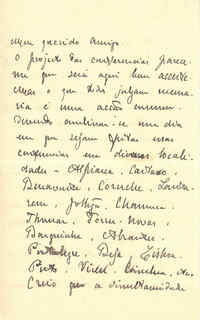 Meu querido Amigo.
O projecto das conferencias parece
me que será aqui bem acceite
mas o que eles julgam necessa
ria é uma acção commum.
em que sejam feitas essas
conferencias em diversas locali
dades - Alpiarça, Cartaxo,
Benavente, Coruche, Santa
rem, Chamusca,
Thomar, Torres Novas,
Barquinha, Abrantes,
Portalegre, Beja, Lisboa,
Porto, Vizeu, Coimbra, etc.
Creio que a simultaneidade